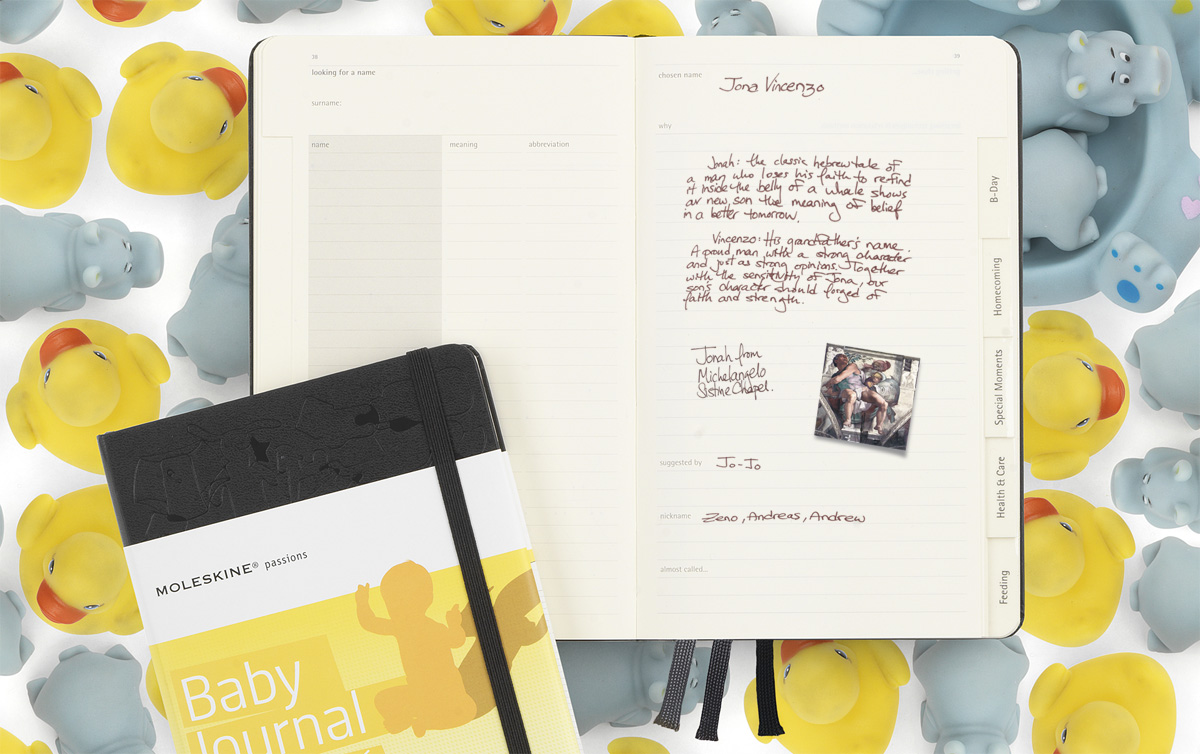 38
looking for a name
surname:
name meaning abbreviation
39
chosen name Jona Vincenzo
why
Jonah: the classic hebrew tale of
a man who loses his faith to re-find
it inside the belly of a whale shows
our new son the meaning of belief
in a better tomorrow.
Vincenzo: His grandfather's name.
A proud man with a strong character
and just as strong opinions. Together
with the sensitivity of Jona, our
son's character should forged of
faith and strength.
Jonah from
Michelangelo
Sistine Chapel.
suggested by Jo-Jo
nickname Zeno, Andreas, Andrew
almost called...
B-Day
Homecoming
Special Moments
Health & Care
Feeding
MOLESKINE® passions
Baby
Journal